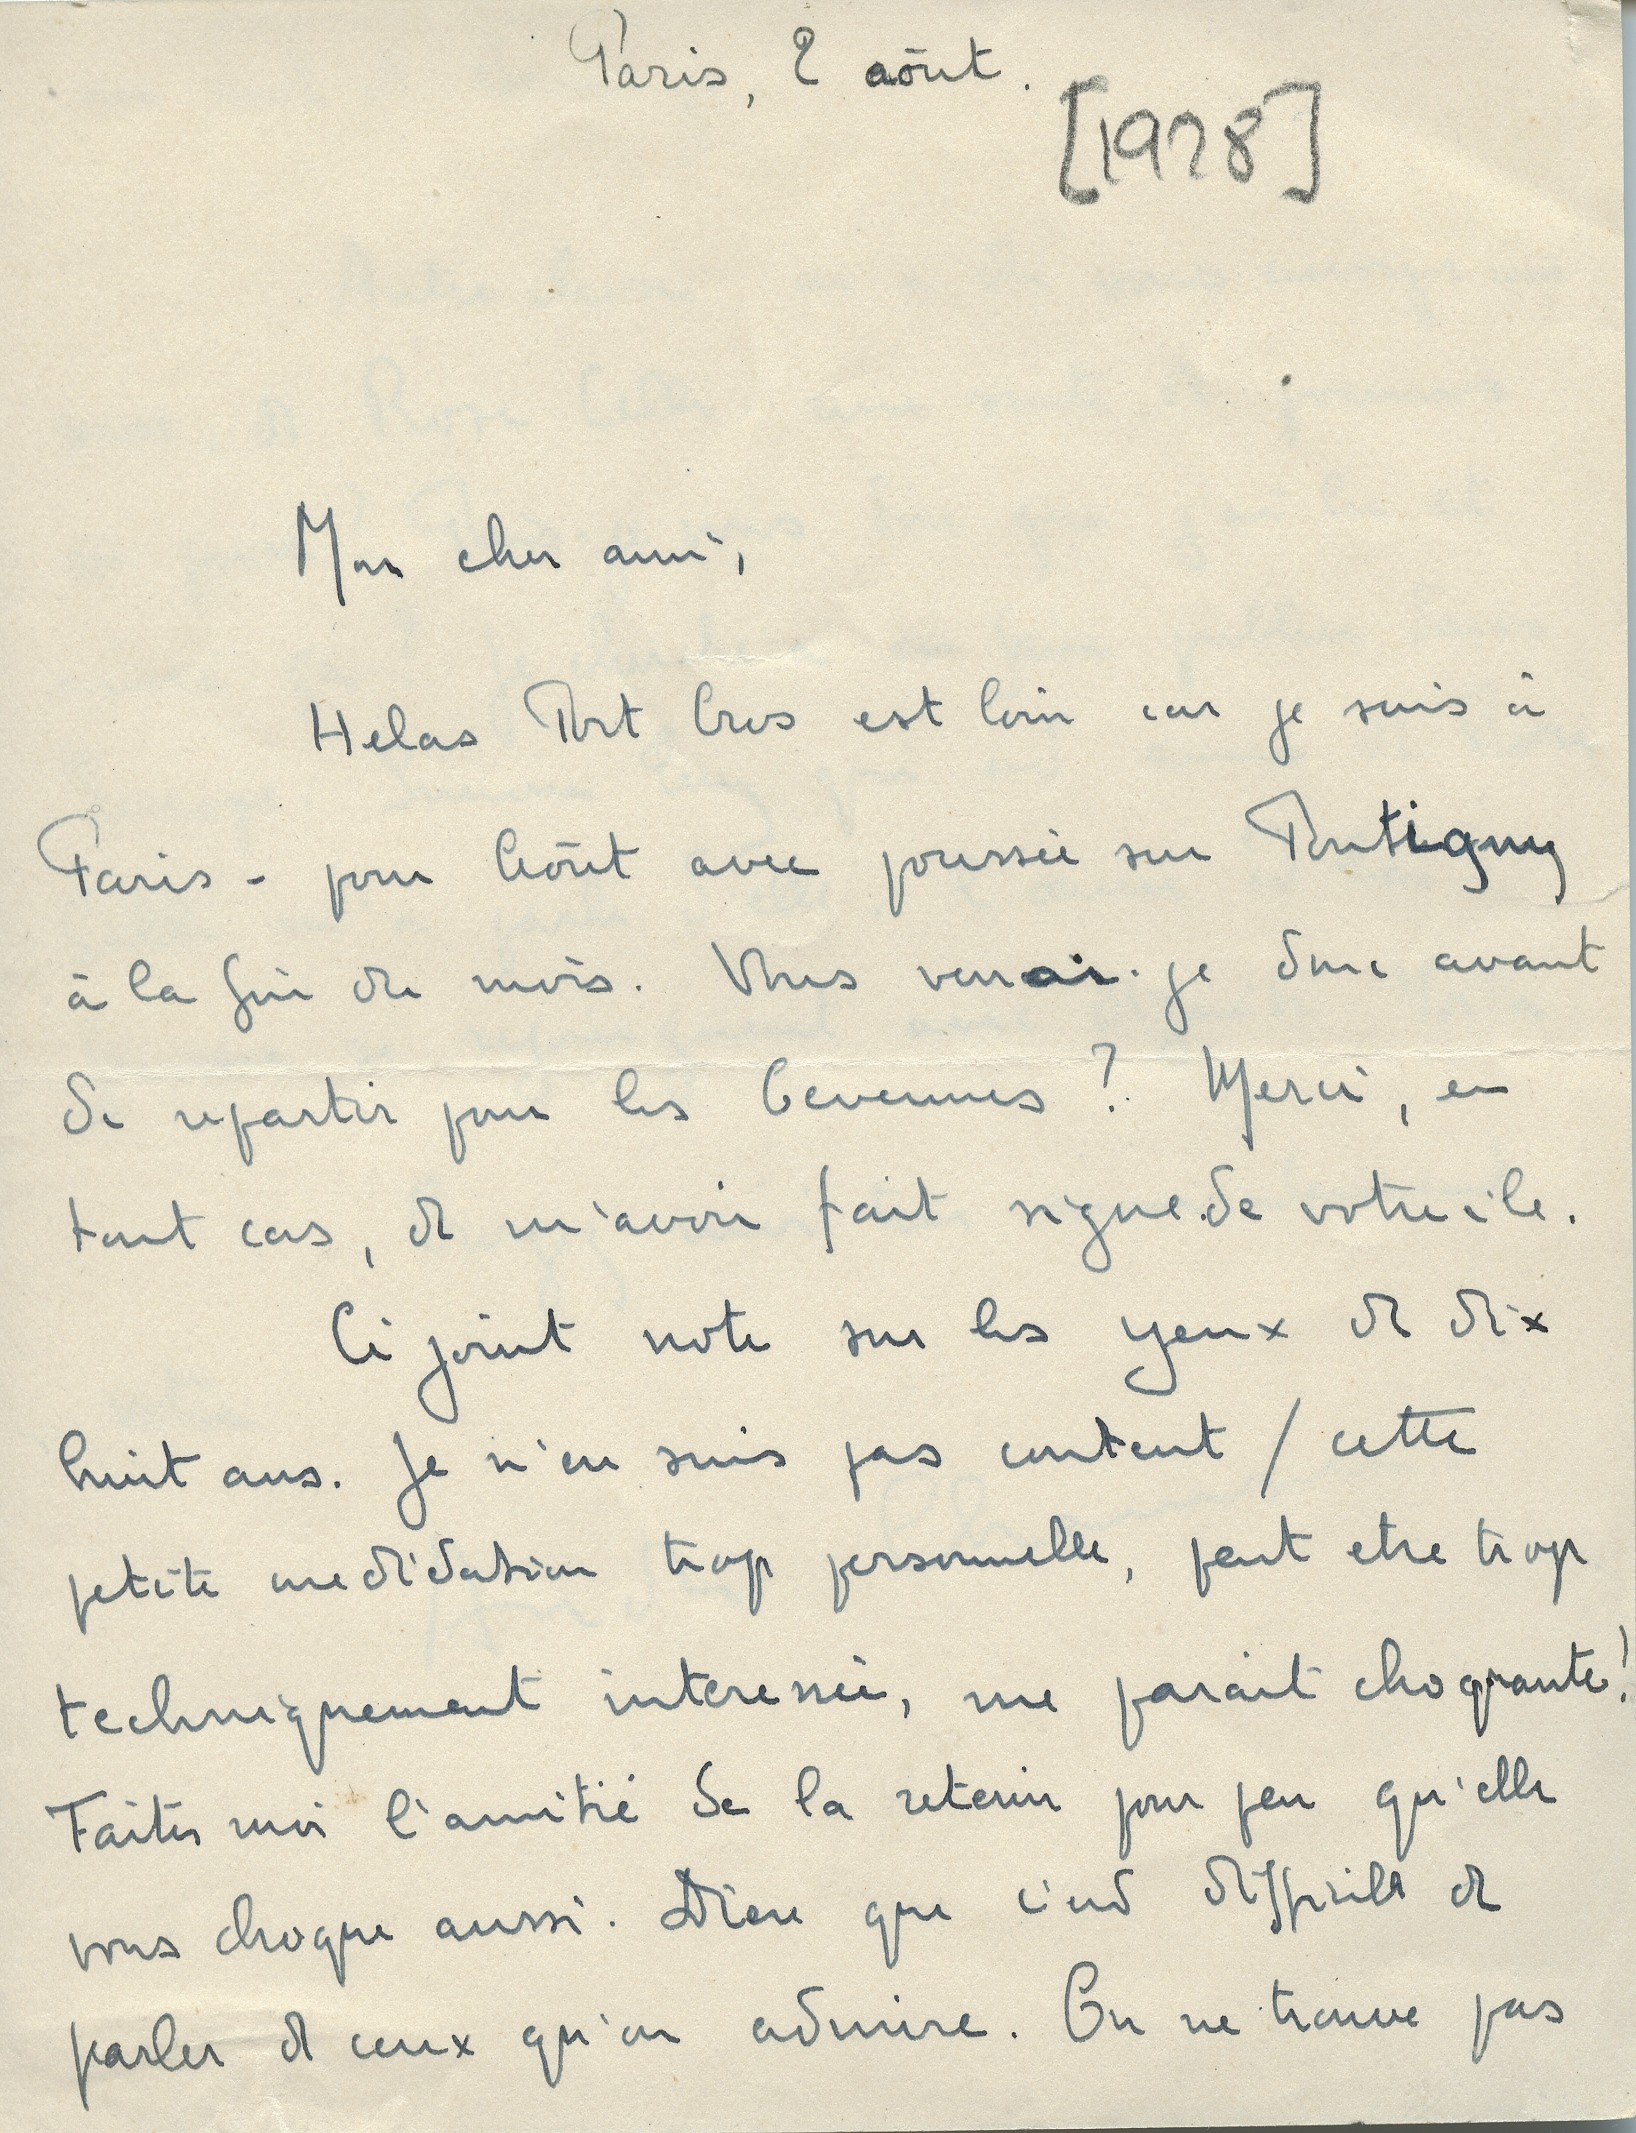 Paris, 2 aôut.
[1928]
Mon cher ami,
Helas Port Cros est loin car je suis à
Paris - pour Aôut avec poussée sur Pontigny
à la fin du mois. Vous verrai-je donc avant
de repartir pour les Cevennes ? Merci, en
tout cas, de m'avoir fait signe de votre ile.
Ci joint note sur les yeux de dix
huit ans. Je n'en suis pas content / cette
petite medidation trop personnelle, peut etre trop
techniquement interessée, me parait choquante !
Faites moi l'amitié de la retenir pour peu qu'elle
vous choque aussi. Dieu que c'est difficile de
parler de ceux qu'on admire. On ne trouve pas